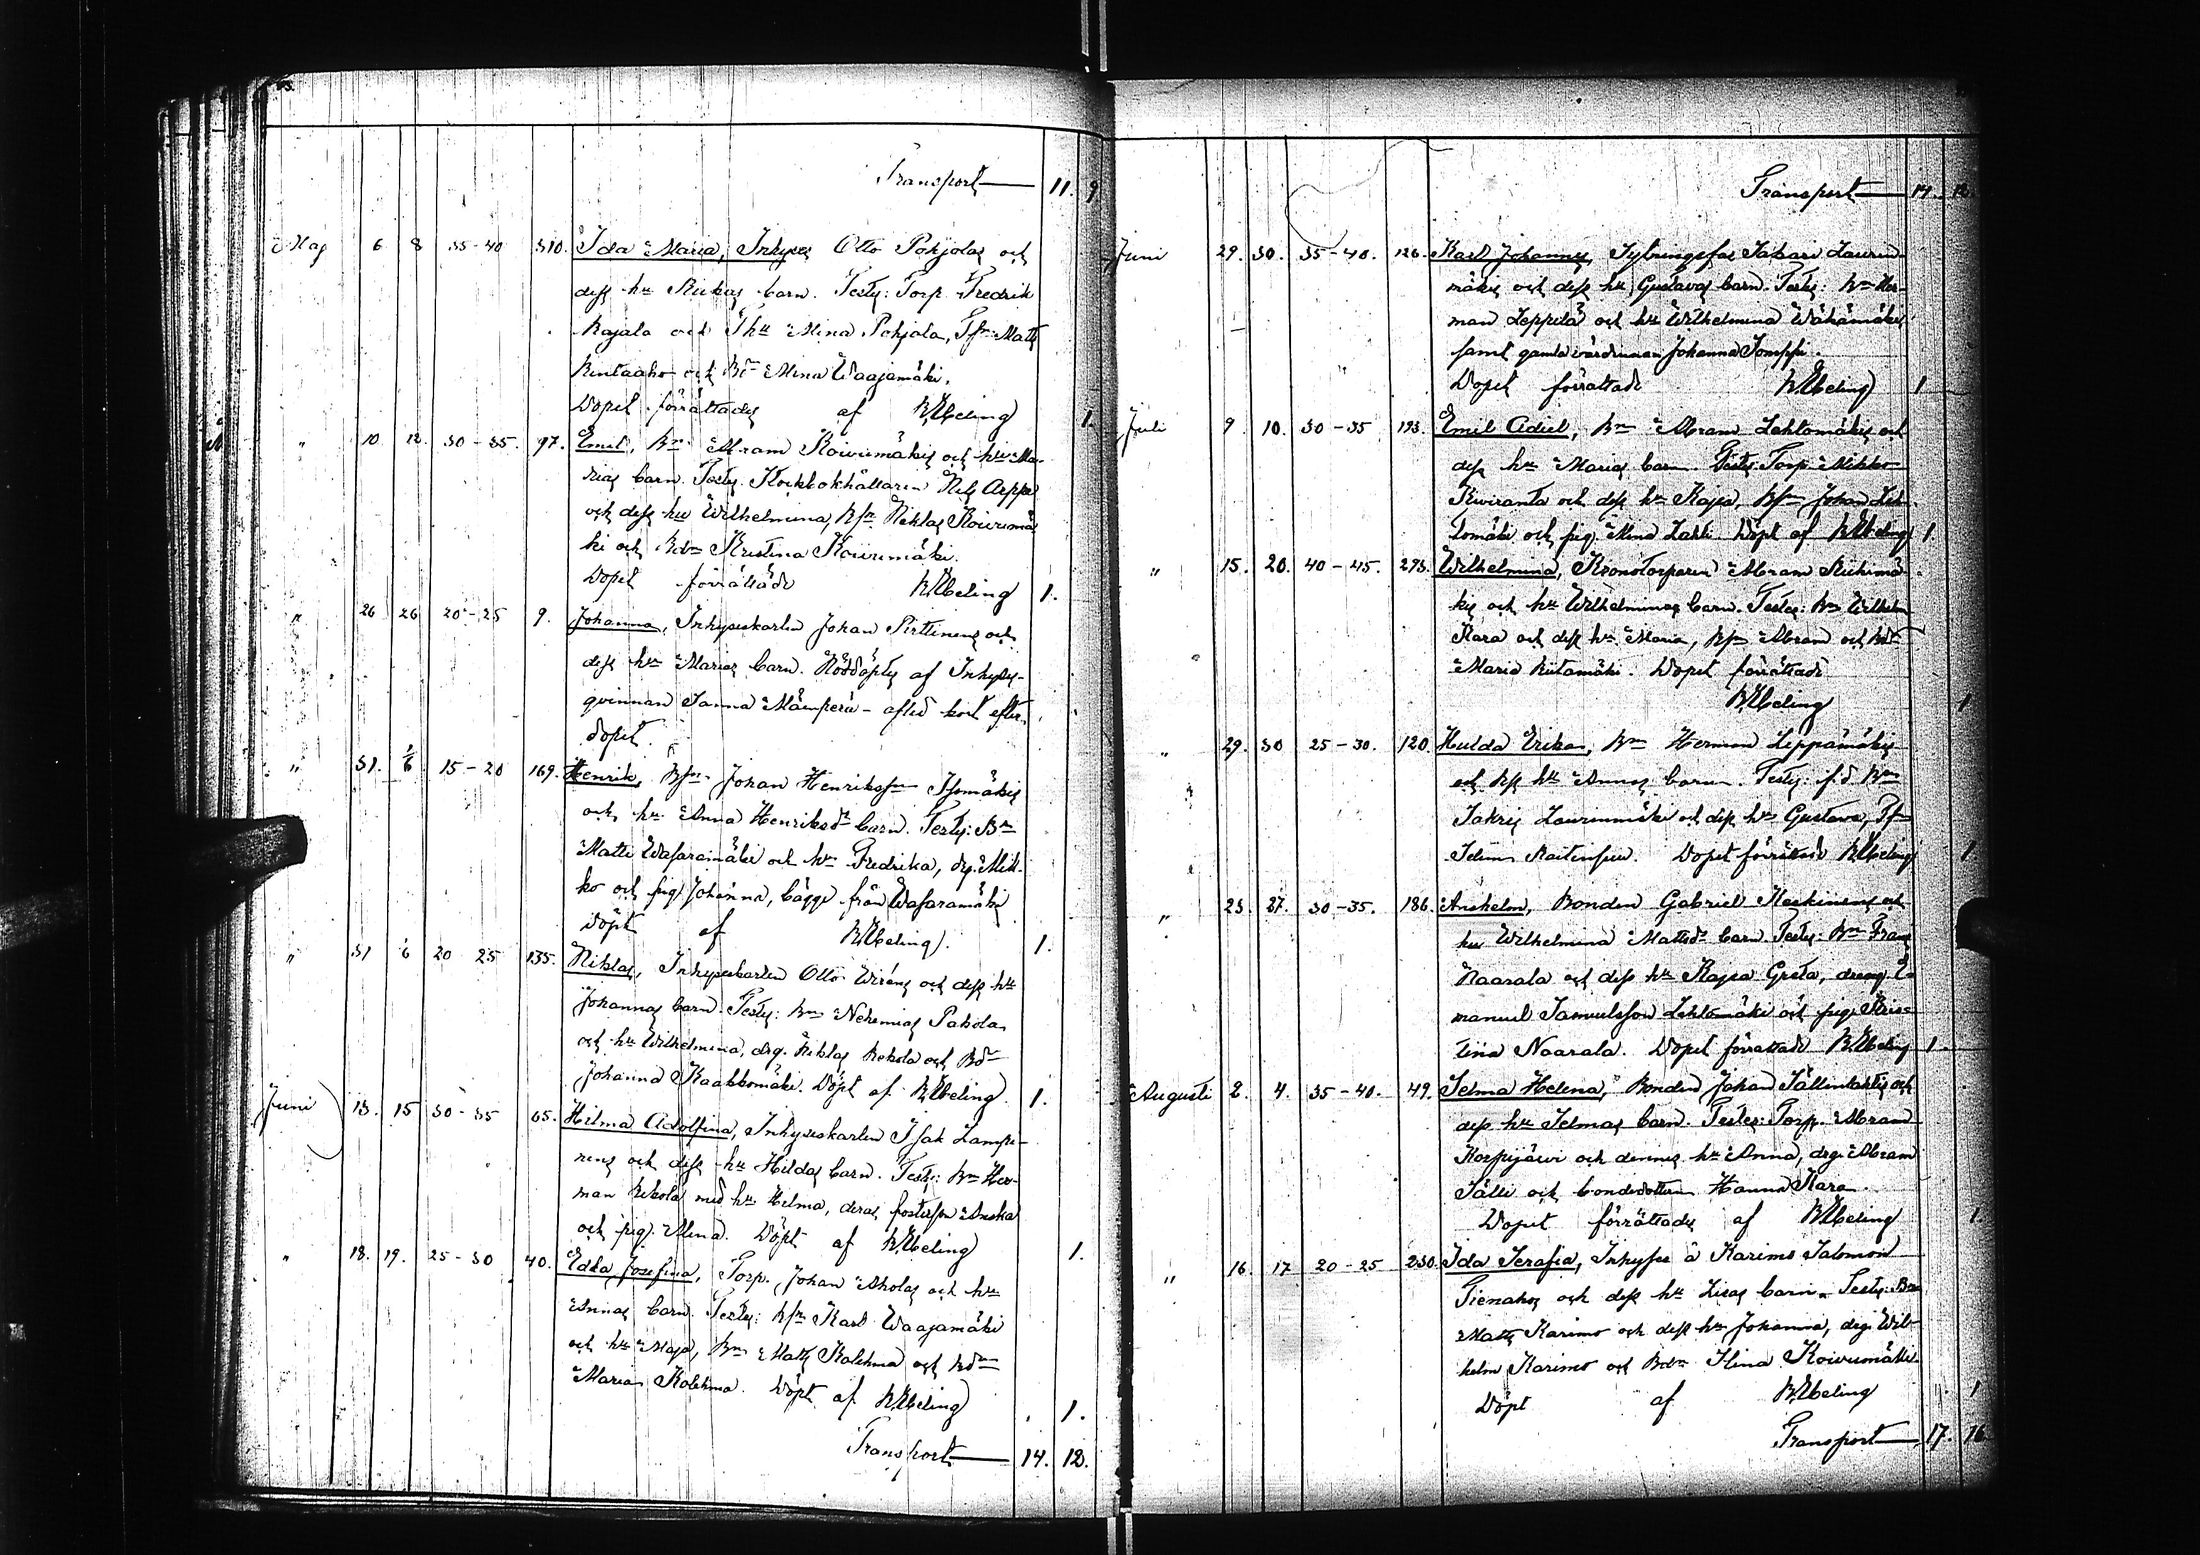 Transport 11. 9
Maj 6 8 35-40 310. Ida Maria, Inhyses Otto Pohjolas och
dess hu Rickas barn. Testes: Torp. Fredrik
Rajala och Ihu Mina Pohjola, Matts
Rintaaho och Mina Waajamäki.
Dopet förrättades af Ebeling 1.
" 10 12. 30-35. 97. Emil, Bn Abram Koivumäkis och hu Ma-
rias barn. Testes. Nils Arppe
och dess hu Wilhelmina, Bsn Niklas Koivumä
ki och Bdn Kristina Koivumäki.
Dopet förrättade Ebeling 1.
" 26 26 20-25 9. Johanna, Inhyseskarlen Johan Pirttinens och
dess hu Marias barn. Nöddöptes af Inhyses-
qvinnan Sanna - afled kort efter
dopet.
" 31. 1/6 15-20 169. Henrik, Bsn Johan Henrikssn Isomäkis
och hu Anna Henriksdr barn. Testes: Bn
Matti Wasaramäki och hu Fredrika, drg. Mik-
ko och pig. Johanna, bägge från Wasaramäki
Döpt af Ebeling. 1.
" 31 6 20 25 135. Niklas, Inhyseskarlen Otto Wiréns och dess hu
Johannas barn. Testes: Bn Nehemias Pakola
och hu Wilhelmina, drg. Niklas Rekola och Bdr
Johanna Kaakkomäki. Döpt af Ebeling 1.
Juni 13. 15 30-35 65. Hilma Adolfina, Inhyseskarlen Isak Lampi-
nens och dess hu Hildas barn. Testes: Bn Her-
man Rekola med hu Helma, deras fosterson
och pig. Mina. Döpt af Ebeling 1.
" 18. 19. 25-30 40. Edla Josefina, Torp. Johan Aholas och hu
Annas barn. Testes: Bsn Karl Waajamäki
och hu Maja, Bn Matts Kolehma och Bdn
Maria Kolehma. Döpt af Ebeling 1.
Transport 14. 12.
Transport 14. 12
Juni 29. 30. 35-40. 126. Karl Johannes, Sytningsfar Sakari Laurin-
mäkis och dess hu Gustavas barn. Testes: Bn Her-
man Leppelä och hu Wilhelmina Wähämäki
samt gamla värdinnan Johanna Tomppi.
Dopet förrättade Ebeling 1
Juli 9. 10. 30-35 193. Emil Adiel, Bn Abram Lehtomäkis och
dess hu Marias barn. Testes: Torp. Mikko
Kiviranta och dess hu Kajsa, Bsn Johan Leh-
tomäki och pig. Mina Lahti. Döpt af Ebeling 1.
" 15. 20. 40-45. 273. Wilhelmina, Kronotorparen Abram Riihimä-
kis och hu Wilhelminas barn. Testes: Bn Wilhelm
Kara och dess hu Maria, Bsn Abram och Bdr
Maria Riitamäki. Dopet förrättade
Ebeling 1
" 29. 30 25-30. 120. Hulda Erika, Bn Herman Leppämäkis
och dess hu Annas barn. Testes: f.d. Bn
Sakris Laurinmäki och dess hu Gustava,
Selim. Dopet förrättade Ebeling 1.
" 25. 27. 30-35. 186. Anshelm, Bonden Gabriel Keskinens och
hu Wilhelmina Mattsdr barn. Testes: Bn Frans
Naarala och dess hu Kajsa Greta, dreng. E-
manuel Samuelsson Lehtomäki och pig. Kris-
tina Naarala. Dopet förrättade Ebeling 1.
Augusti 2. 4. 35-40. 49. Selma Helena, Bonden Johan Sällinlahtis och
dess hu Selmas barn. Testes: Torp. Abram
Korpijärvi och dennes hu Anna, drg. Abram
Sälli och bondedottern Hanna Kara.
Dopet förrättades af Ebeling 1.
" 16. 17 20-25 230. Ida Serafia, Inhyses å Karimo Salomon
Pienahos och dess hu Lisas barn. Testes: Bn
Matts Karimo och dess hu Johanna, drg. Wil-
helm Karimo och Bdn Stina Koivumäki
Döpt af Ebeling 1
Transport 17. 16.